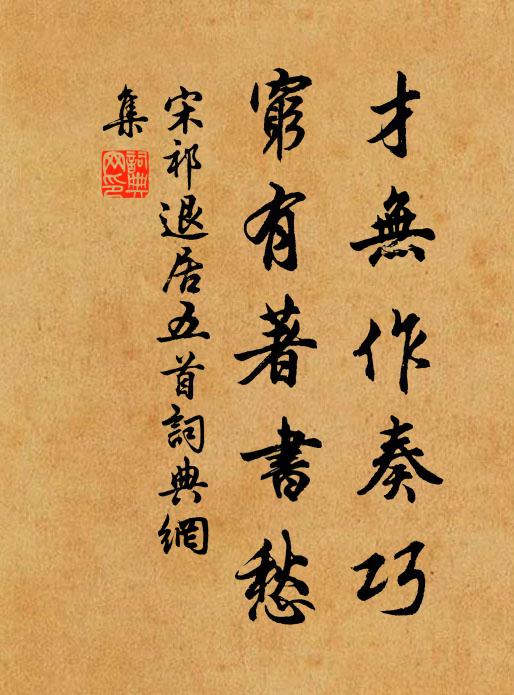 才無作奏巧
窮有著書愁
宋祁退居五首詞典網
集
詞典
网印